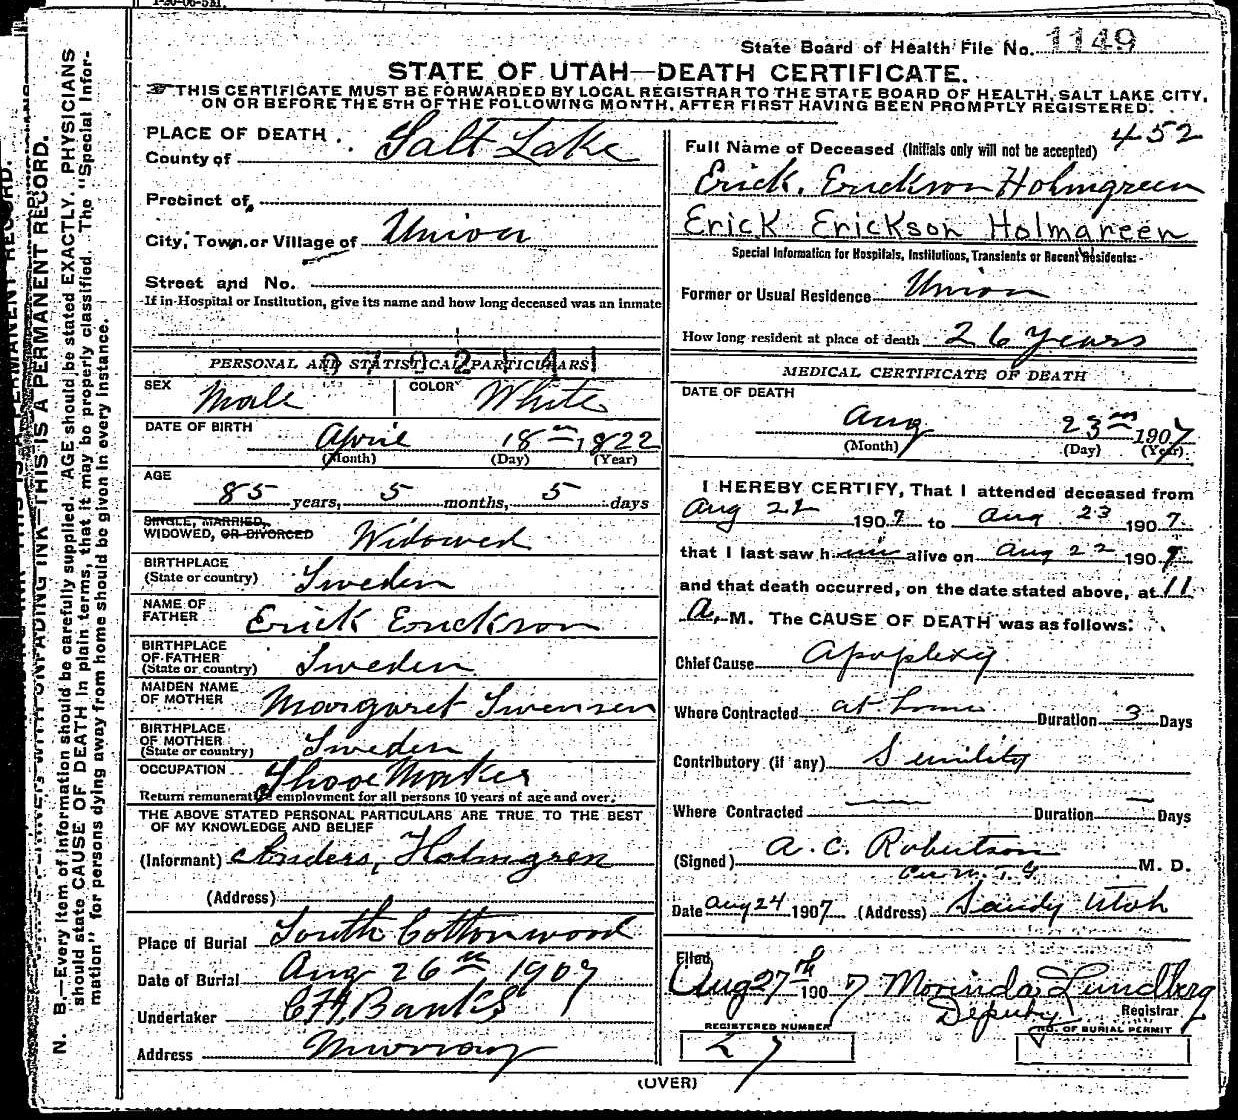 1-20-06-5M.
State Board of Health File No. 1149
STATE OF UTAH—DEATH CERTIFICATE.
THIS CERTIFICATE MUST BE FORWARDED BY LOCAL REGISTRAR TO THE STATE BOARD OF HEALTH, SALT LAKE CITY,
ON OR BEFORE THE 5TH OF THE FOLLOWING MONTH, AFTER FIRST HAVING BEEN PROMPTLY REGISTERED.
N. B.—Every item of information should be carefully supplied. AGE should be stated EXACTLY. PHYSICIANS
should state CAUSE OF DEATH in plain terms, that it may be properly classified. The "Special Infor-
mation" for persons dying away from home should be given in every instance.
WITH UNFADING INK—THIS IS A PERMANENT RECORD.
PLACE OF DEATH
County of Salt Lake
Precinct of
City, Town or Village of Union
Street and No.
If in Hospital or Institution, give its name and how long deceased was an inmate
PERSONAL AND STATISTICAL PARTICULARS
SEX Male COLOR White
DATE OF BIRTH April 18 1822
(Month) (Day) (Year)
AGE
85 years, 5 months, 5 days
SINGLE, MARRIED,
WIDOWED, OR DIVORCED Widowed
BIRTHPLACE
(State or country) Sweden
NAME OF
FATHER Erick Erickson
BIRTHPLACE
OF FATHER
(State or country) Sweden
MAIDEN NAME
OF MOTHER Margaret Swensen
BIRTHPLACE
OF MOTHER
(State or country) Sweden
OCCUPATION Shooe Maker
Return remunerative employment for all persons 10 years of age and over.
THE ABOVE STATED PERSONAL PARTICULARS ARE TRUE TO THE BEST
OF MY KNOWLEDGE AND BELIEF
(Informant) Anders, Holmgren
(Address)
Place of Burial South Cottonwood
Date of Burial Aug 26th 1907
Undertaker Banks
Address Murray
452
Full Name of Deceased (Initials only will not be accepted)
Erick. Erickson Holmgreen
Erick Erickson Holmgreen
Special Information for Hospitals, Institutions, Transients or Recent Residents:-
Former or Usual Residence Union
How long resident at place of death 26 Years
MEDICAL CERTIFICATE OF DEATH
DATE OF DEATH
Aug 23 1907
(Month) (Day) (Year)
I HEREBY CERTIFY, That I attended deceased from
Aug 22 1907 to Aug 23 1907.
that I last saw him alive on Aug 22 1907
and that death occurred, on the date stated above, at 11
A. M. The CAUSE OF DEATH was as follows:
Chief Cause Apoplexy
Where Contracted at home Duration 3 Days
Contributory (if any) Senility
Where Contracted — Duration — Days
(Signed) A. C. Robertson M. D.
Date Aug 24 1907 (Address) Sandy Utah
Filed
Aug 27th 1907 Morinda Lundberg
Deputy Registrar
REGISTERED NUMBER NO. OF BURIAL PERMIT
27
(OVER)